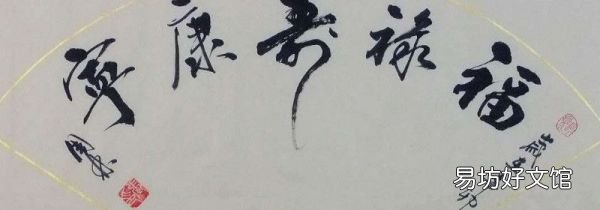 福禄寿康寧
易坊好文馆